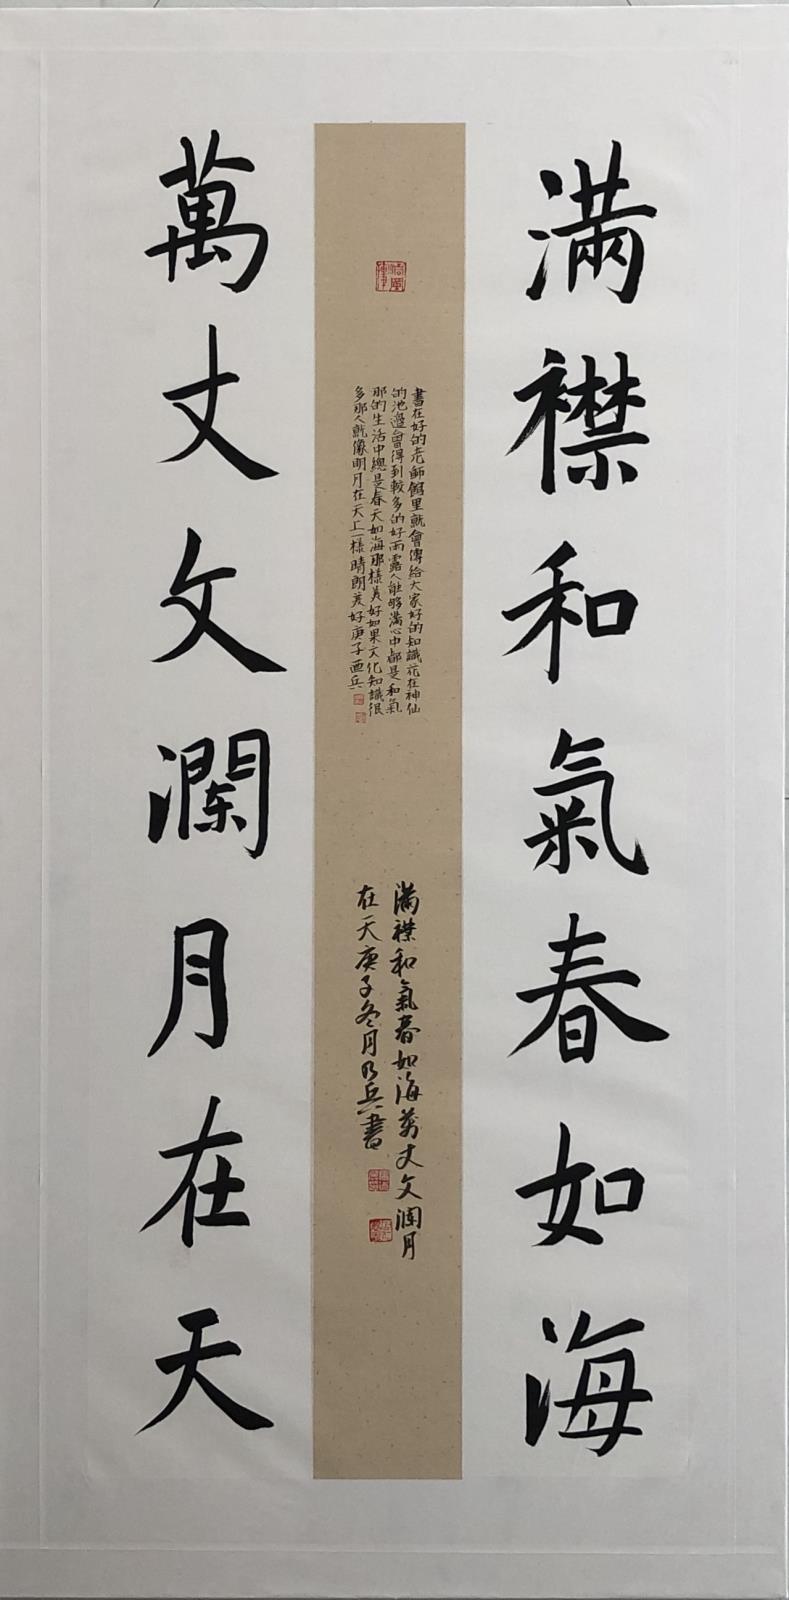 滿襟和氣春如海
書在好的老師館里就會傳給大家好的知識花在神仙
的池邊會得到較多的好雨露人能够滿心中都是和氣
那的生活中總是春天如海那樣美好如果文化知識很
多那人就像明月在天上一樣晴朗美好庚子西兵
滿襟和氣春如海萬丈文瀾月
在天庚子冬月乃兵書
萬丈文瀾月在天